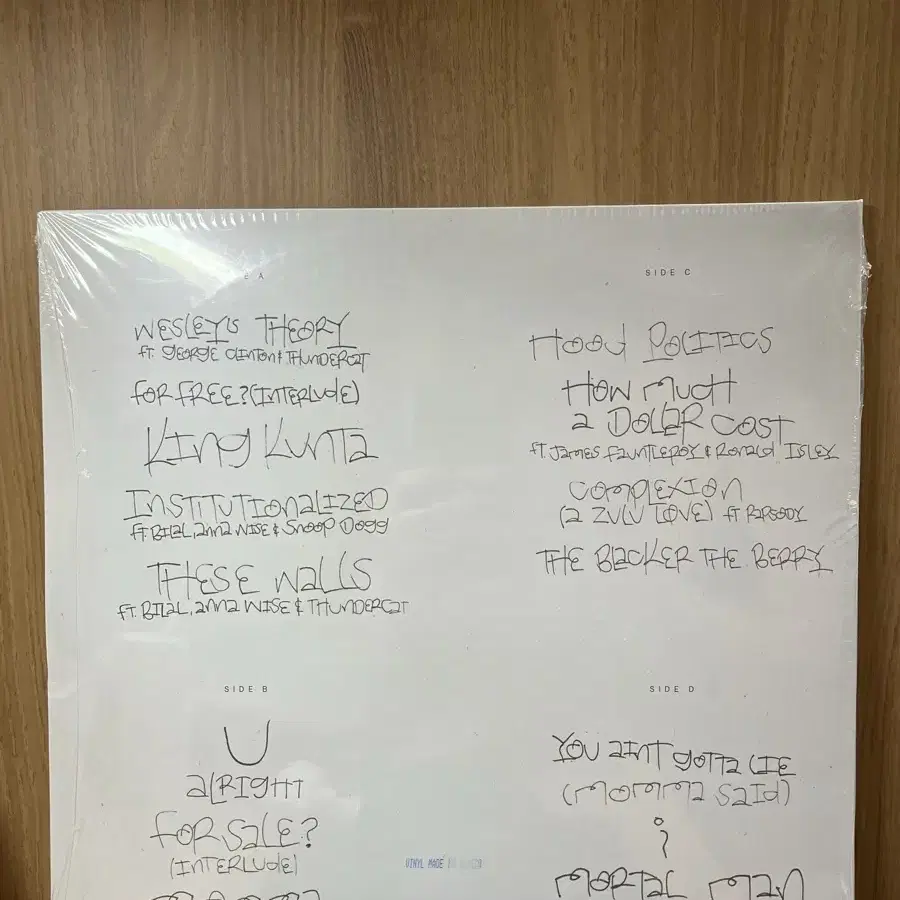 A
WESLEY'S THEORY
FT. GEORGE CLINTON & THUNDERCAT
FOR FREE? (INTERLUDE)
KING KUNTA
INSTITUTIONALIZED
FT. BILAL, ANNA WISE & SNOOP DOGG
THESE WALLS
FT. BILAL, ANNA WISE & THUNDERCAT
SIDE B
U
ALRIGHT
FOR SALE?
(INTERLUDE)
SIDE C
HOOD POLITICS
HOW MUCH
A DOLLAR COST
FT. JAMES FAUNTLEROY & RONALD ISLEY
COMPLEXION
(A ZULU LOVE) FT RAPSODY
THE BLACKER THE BERRY
SIDE D
YOU AINT GOTTA LIE
(MOMMA SAID)
i
MORTAL MAN
VINYL MADE